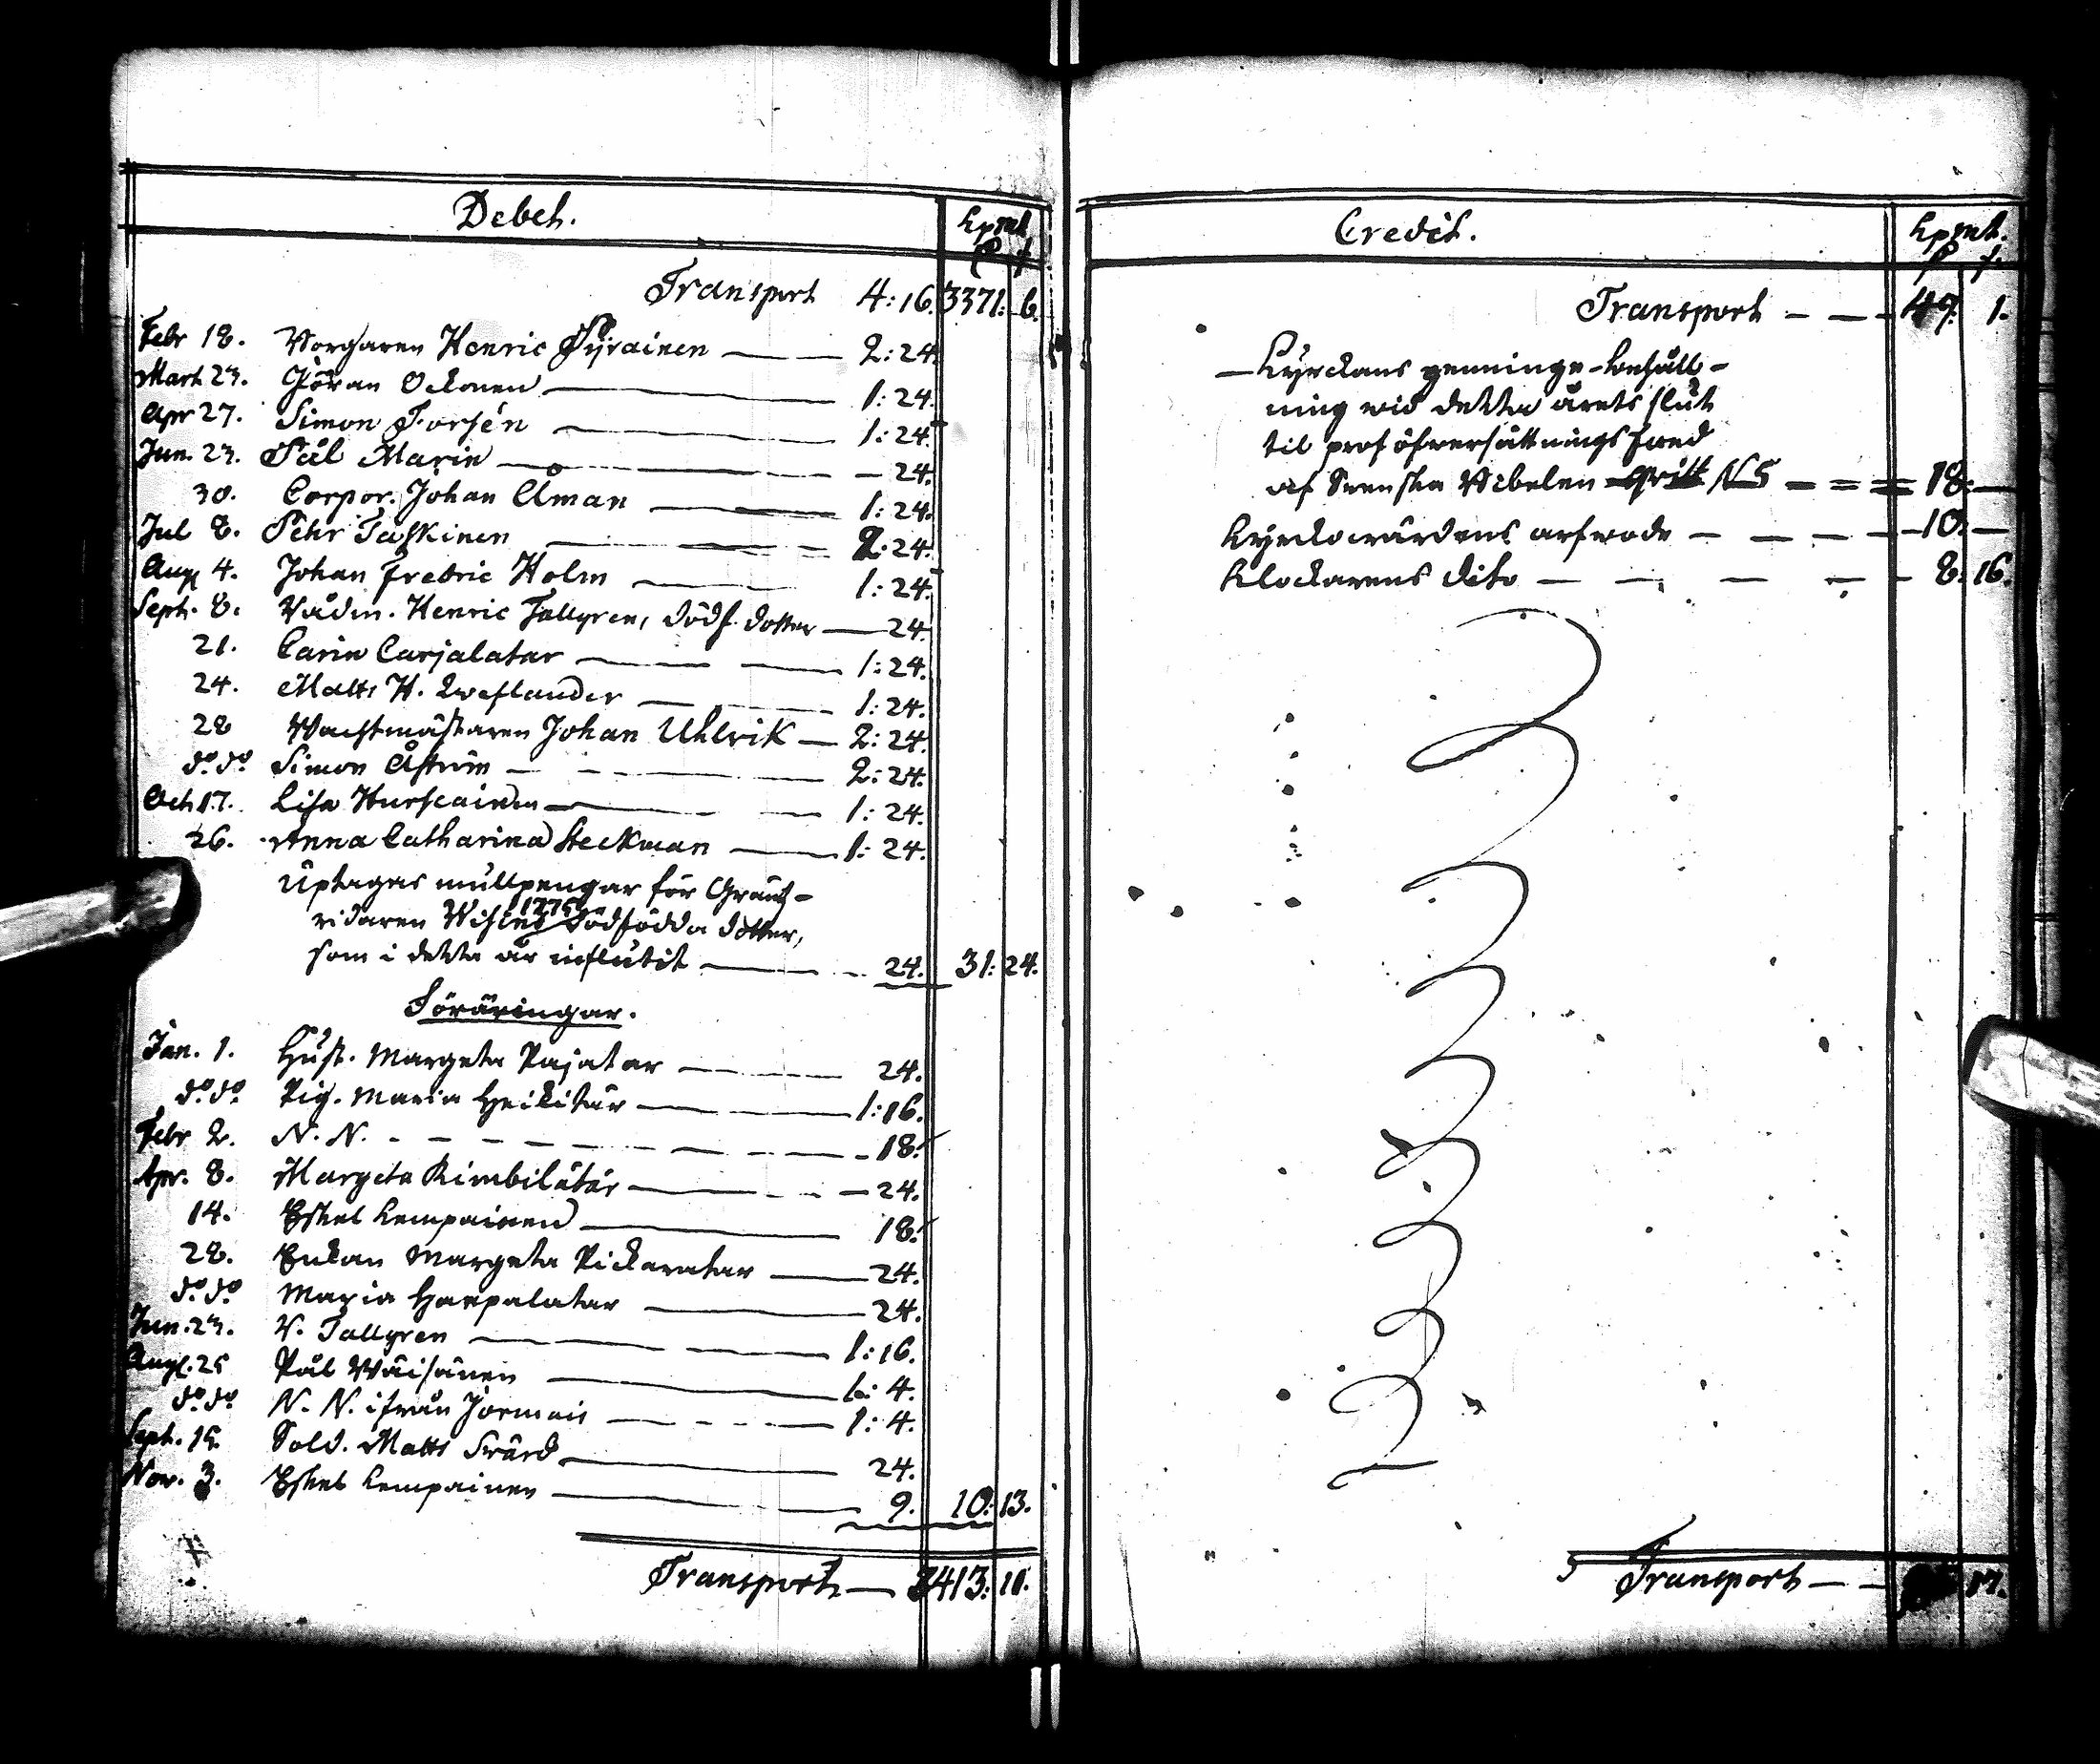 Debet.
Kpmt
Transport 4: 16. 3371: 6.
Febr 18. Borgaren Henric Pyrainen — 2: 24.
Mart. 23. Jöran Ockonen — 1: 24.
Apr 27. Simon Forsén — 1: 24.
Jun. 23. Pål Marin — 24.
30. Corpor. Johan Åman — 1: 24.
Jul 8. Pehr Taskinen — 2: 24.
Aug 4. Johan Fredric Holm — 1: 24.
Sept. 8. Rådm. Henric Tallgren, dödf. dotter — 24.
21. Carin Carjalatar — 1: 24.
24. Matts H. Kveflander — 1: 24.
28 Wachtmästaren Johan Uhlrik — 2: 24.
do. do. Simon Åström — 2: 24.
Oct 17. Lisa Hurscainen — 1: 24.
26. Anna Catharina Steckman — 1: 24.
Uptages mullpengar för Gräns-
ridaren dödfödda dotter,
som i detta år influtit — 24. 31: 24.
Föräringar.
Jan. 1. Hust. Margeta Pajatar — 24.
do. do. Pig. Maria Heikitär — 1: 16.
Febr 2. N. N. — 18.
Apr. 8. Margeta Kimbilätär — 24.
14. Eskel Kempainen — 18.
28. Enkan Margeta Pickaratar — 24.
do. do. Maria Harpalatar — 24.
Jun. 23. V. Tallgren — 1: 16.
Aug. 25 Pål Wäisänen — 1: 4.
do. do. N. N. ifrån Jormais — 1: 4.
Sept. 15. Sold. Matts Svärd — 24.
Nov. 3. Eskel Kempainen — 9. 10: 13.
Transport — 3413: 11.
Credit.
Kpmt.
Transport — 49. 1.
— Kyrckans penninge-behåll-
ning wid detta årets slut
til prof öfversättnings
af Svenska Bibelen qvitt N 5 — 18: —
Kyrckowärdens arfwode — 10: —
Klockarens dito — 8: 16.
Transport — 17.